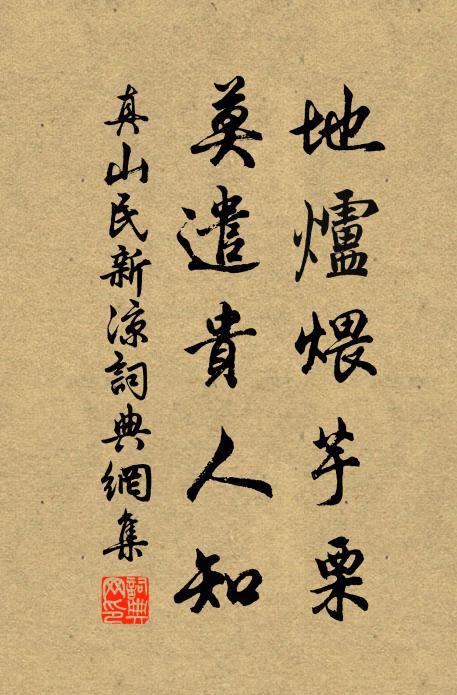 地爐煨芋栗
莫遣貴人知
真山民新涼詞典網集
詞典网印